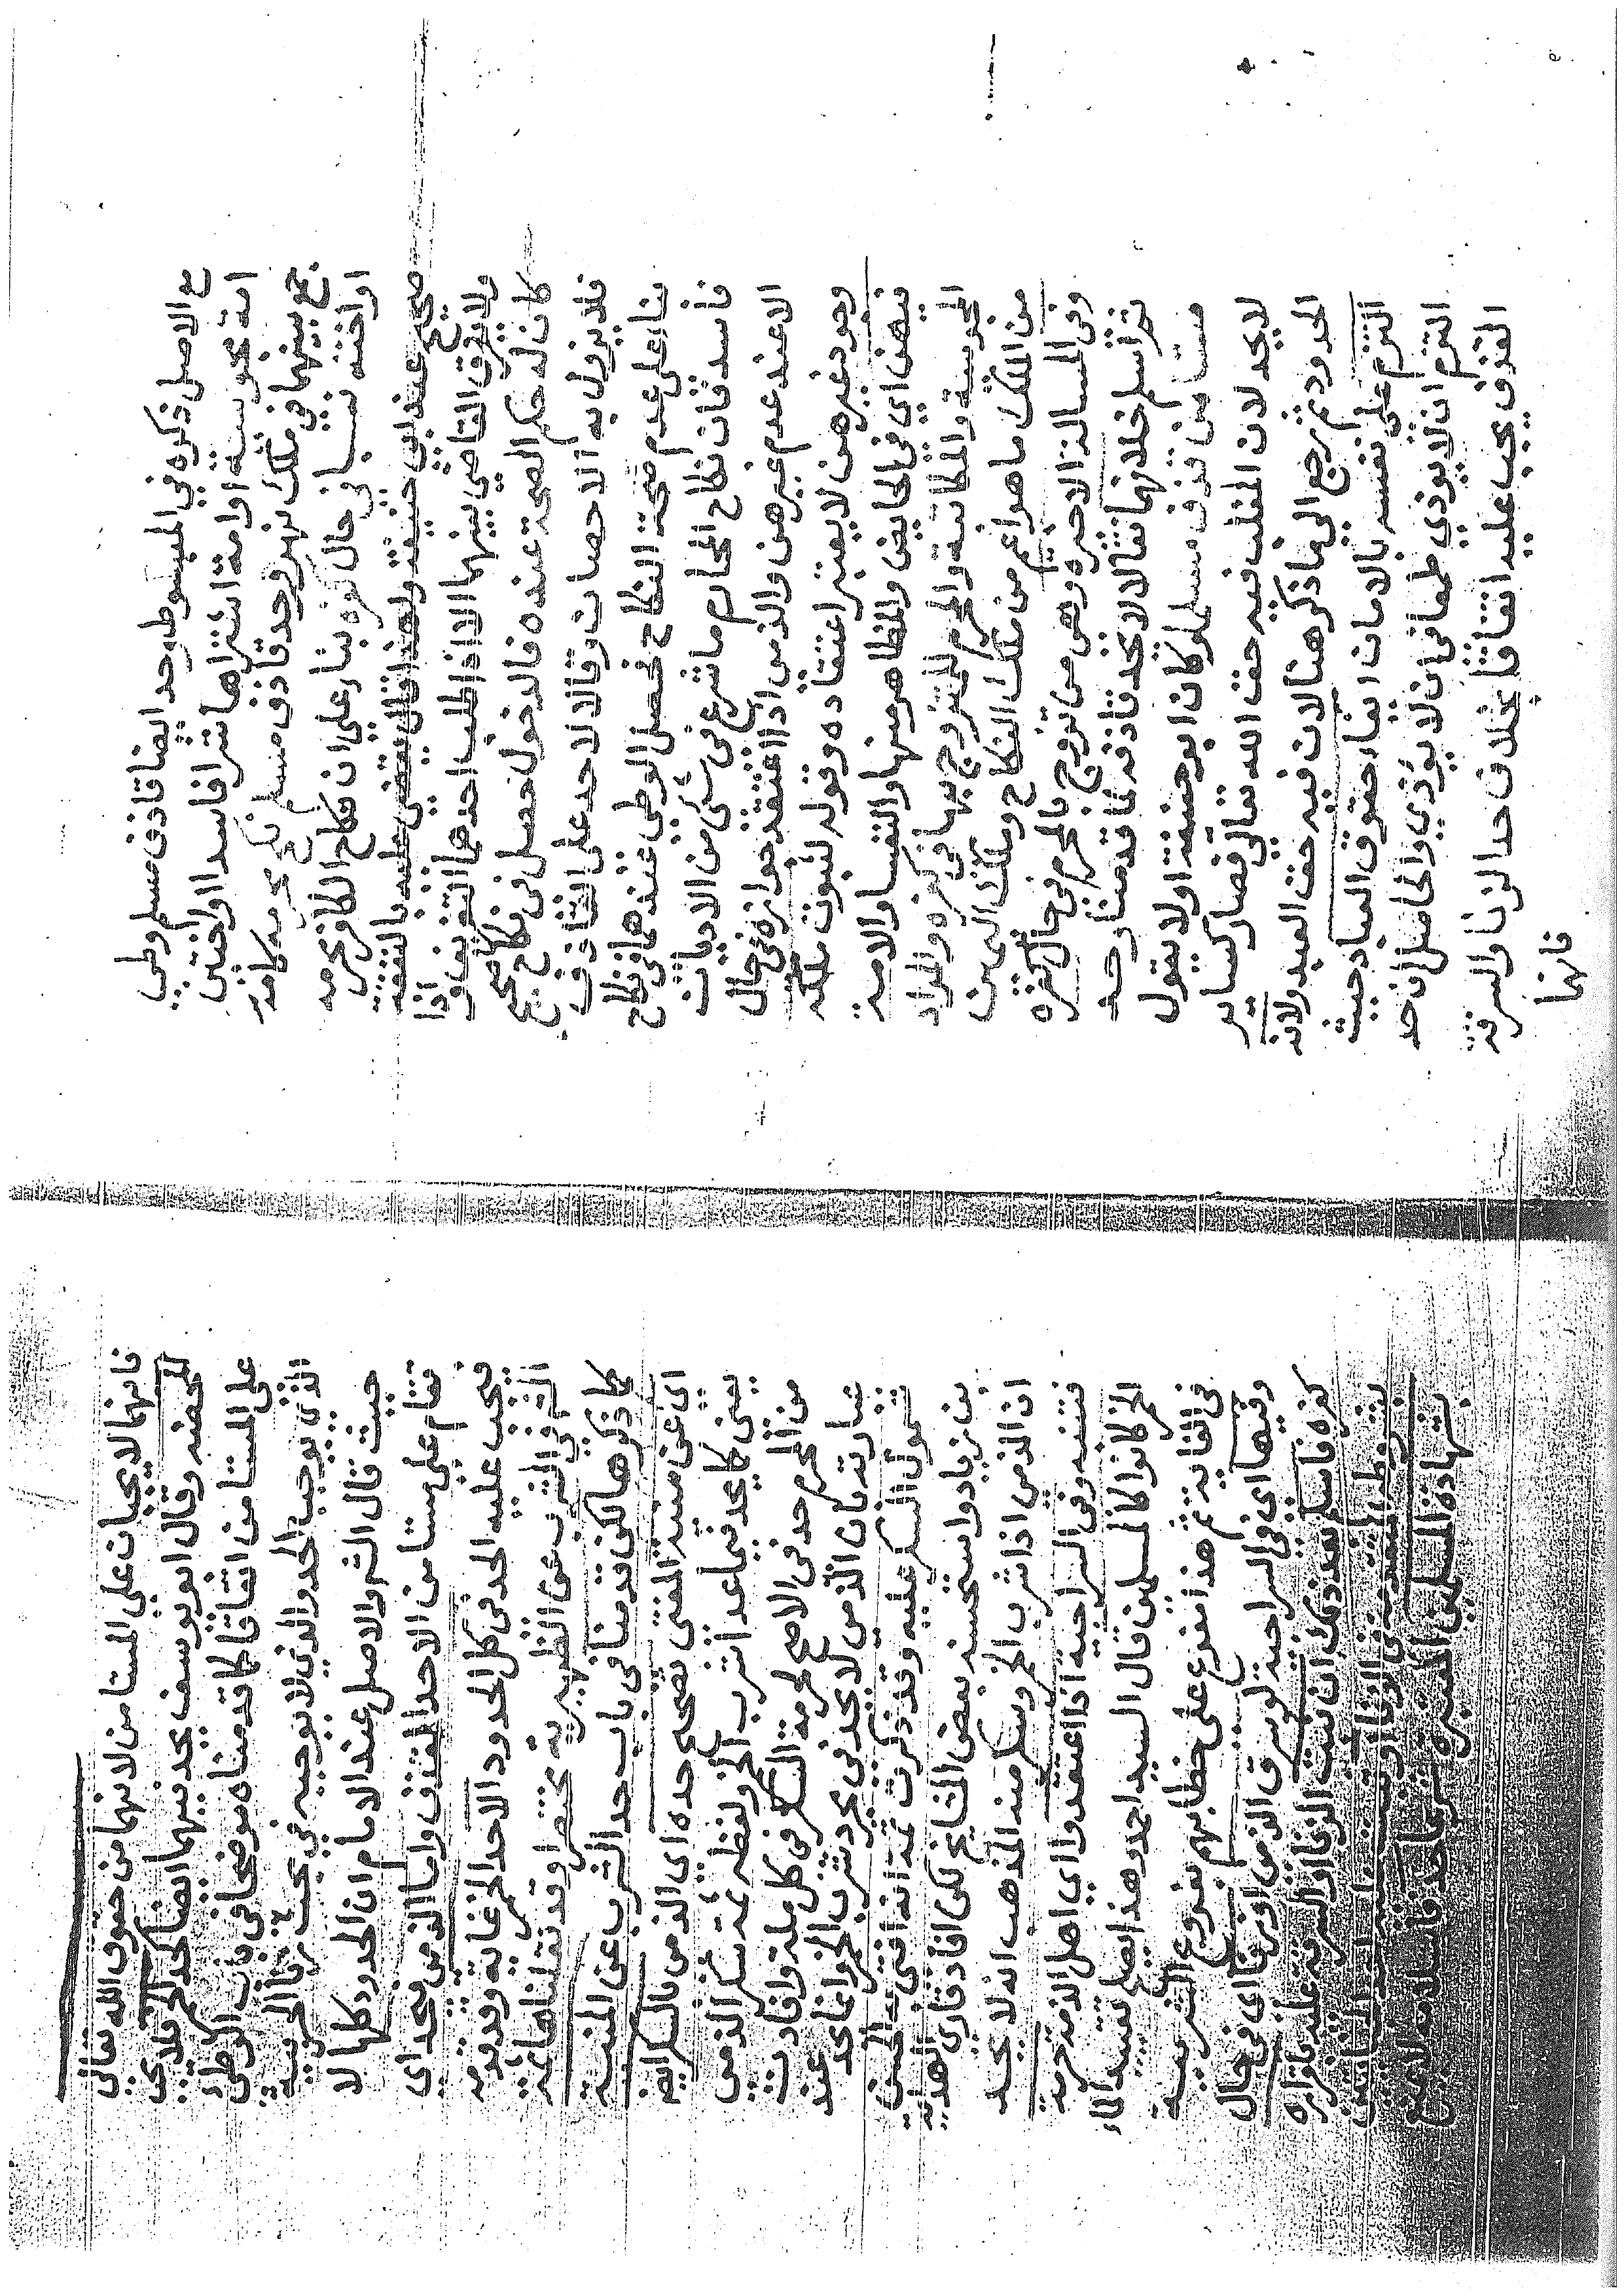 ع الاصل ذكره في المبسوط وحد ايضا قاذف مسلم وطي
امة مجوسية او امة اشتراها شرا فاسدا او اختين
جمع بينهما في ملك نهر وحد قاذف مسلم نكح محرمه كامه
او اخته نسبا في حال كفره بناء علي ان نكاح الكافر محرمه
صحيح عند ابي حنيفة ولهذا قال يقضي عليه بالنفقة
ولا يفرق القاضي بينهما الا اذا طلب احدهما التفريق واذا
كان له حكم الصحة عنده فالدخول حصل في نكاح صحيح
فلا يزول به الاحصان وقالا لا حد على القاذف
بناء على عدم صحة النكاح فحصل الوطي عندهما في نكاح
فاسد فان نكاح المحارم ما شرع في شئ من الاديان
الا عند عدم غيرهن والذمي اذا اعتقد جوازه في حال
وجود غيرهن لا يعتبر اعتقاده وقوله لثبوت ملكه
فيهن اي في الحايض والمظاهر منها والنفسا والامة
المجوسية والمكاتبة والمحرم المتزوج بها في كفره والمراد
من الملك ما هو اعم من ملك النكاح وملك اليمين
وفي المسالة الاخيرة وهي من تزوج بالمحرم في حال كفره
ثم اسلم خلافهما فقالا لا يحد قاذفه كما قدمنا وحد
مستامن قذف مسلما وكان ابو حنيفة اولا يقول
لا يحد لان المغلب فيه حق الله تعالى فصار كساير
الحدود ثم رجع الي ما ذكر هنا لان فيه حق العبد ولانه
التزم على نفسه بالامان ايفاء حقوق العباد حيث
التزم ان لا يوذي طمعا في ان لا يؤذي والحاصل ان حد
القذف يجب عليه اتفاقا بخلاف حد الزنا والسرقة
فانهما
فانهما لا يجبان علي المستامن لانهما من حقوق الله تعالى
المحضة وقال ابو يوسف يحد فيهما ايضا كحد الخمر فلا يجب
على المستامن اتفاقا كما قدمناه موضحا في باب الوطي
الذي يوجب الحد والذي لا يوجبه في بحث زنا الحربية
حيث قال الشر والاصل عند الامام ان الحدود كلها لا
تقام على مستامن الا حد القذف واما الذمي فيحد اي
فيجب عليه الحد في كل الحدود الا حد الخمر غاية وقدمه
الشر في الشرب عن الظهيرية مختصرا وقد نقلناها ثمة
كما ذكرها لكن قدمنا في باب حد الشرب عن المنية
اي عن منية المفتي تصحيح حده اي الذمي بالسكر ايض
يعني كما يحد فيما عدا شرب الخمر ولفظه ثمة سكر الذمي
من المحرم حد في الاصح لحرمة السكر في كل ملة وافادت
عبارته بان الذمي لا يحد في مجرد شرب الخمر وانما يحد عند
ثبوت السكر عليه وقد ذكرت ثمة انه افتي به الحسن
بن زياد واستحسنه بعض المشايخ لكن افاد قاري الهداية
ان الذمي اذا شرب الخمر وسكر منه المذهب انه لا يحد
فتنبه وفي السراجية اذا اعتقدوا اي اهل الذمة حرمة
الخمر كانوا كالمسلمين قال السيد احمد وهذا يصلح تقييدا لما
في الغاية ثم هذا مفرع على خطابهم بفروع الشريعة
وفيها اي في السراجية لو سرق الذمي او زنا اي في حال
كفره فاسلم بعد ذلك ان ثبت الزنا او السرقة عليه باقراره
بشهادة المسلمين